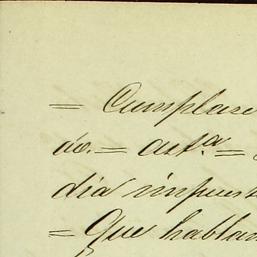 = Cumplase
ão. = art.a =
dia impuest
= Que hablan